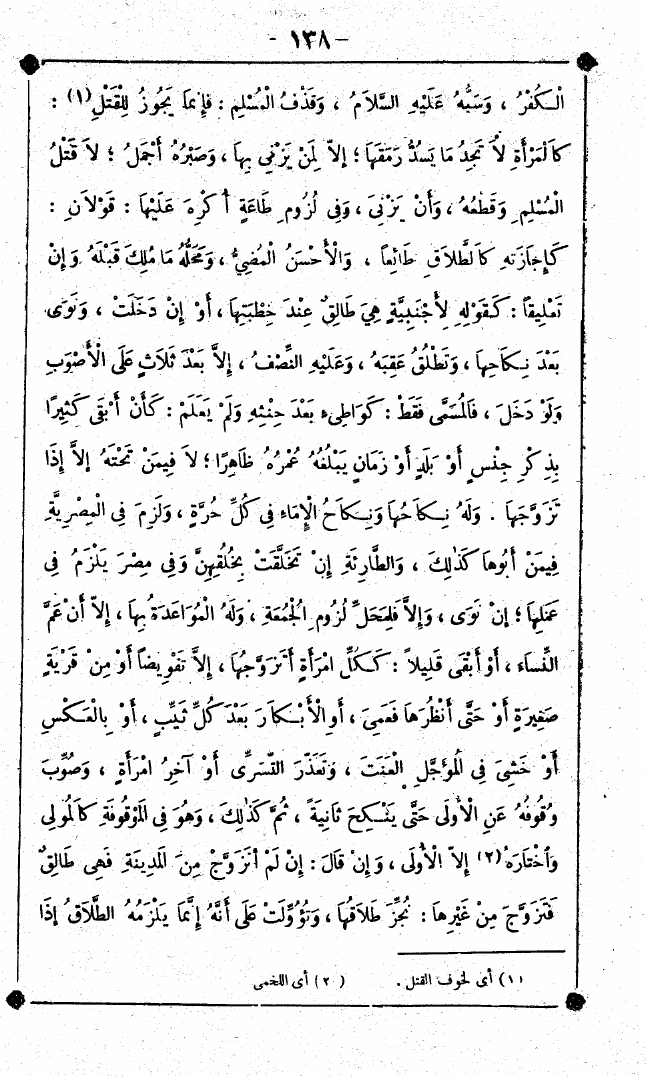 - ١٣٨ -
الْكُفْرُ ، وَسَبُّهُ عَلَيْهِ السَّلاَمُ ، وَقَذْفُ الْمُسْلِمِ : فَإِنمَا يَجُوزُ لِلْقَتْلِ (١) :
كَالْمَرْأَةِ لاَ تَجِدُ مَا يَسُدُّ رَمَقَهَا ؛ إلاَّ لِمَنْ يَزْنِي بِهَا ، وَصَبْرُهُ أَجْمَلُ ؛ لاَ قَتْلُ
الْمُسْلِمِ وَقَطْعُهُ ، وَأَنْ يَزْنِىَ ، وَفِى لُزُومِ طَاعَةٍ أُكْرِهَ عَلَيْهَا : قَوْلاَنِ :
كَإِجَازَتِهِ كَالطَّلاَقِ طَائِعاً ، وَالْأَحْسَنُ الْمُضِيُّ ، وَمَحَلُّهُ مَا مُلِكَ قَبْلَهُ وَإِنْ
تَعْلِيقاً : كَقَوْلِهِ لِأَجْنَبِيَّةٍ هِيَ طَالِقٌ عِنْدَ خِطْبَتِهَا ، أَوْ إِنْ دَخَلَتْ ، وَنَوَى
بَعْدَ نِكَاحِهَا ، وَتَطْلُقُ عَقِبَهُ ، وَعَلَيْهِ النِّصْفُ ، إِلاَّ بَعْدَ ثَلاَثٍ عَلَى الْأَصْوَبِ
وَلَوْ دَخَلَ ، فَالْمُسَمَّى فَقَطْ : كَوَاطِىءِ بَعْدَ حِنْثِهِ وَلَمْ يَعْلَمْ : كَأَنْ أَبْقَى كَثِيرًا
بِذِكْرِ جِنْسٍ أَوْ بَلَدٍ أَوْ زَمَانٍ يَبْلُغُهُ عُمْرُهُ ظَاهِرًا ؛ لاَ فِيمَنْ تَحْتَهُ إلاَّ إذَا
تَزَوَّجَهَا . وَلَهُ نِكَاحُهَا وَنِكَاحُ الْإِمَاءِ فِي كُلِّ حُرَّةٍ ، وَلَزِمَ فِى الْمِصْرِيَّةِ
فِيمَنْ أَبُوهَا كَذٰلِكَ ، وَالطَّارِئَةِ إِنْ تَخَلَّقَتْ بِخُلُقِهِنَّ وَفِى مِصْرَ يَلْزَمُ فِى
عَمَلِهَا ؛ إِنْ نَوَى ، وَإِلاَّ فَلِمَحَلِّ لُزُومِ الْجُمُعَةِ ، وَلَهُ الْمُوَاعَدَةُ بِهَا ، إِلاَّ أَنْ عَمَّ
النِّسَاءِ ، أَوْ أَبْقَى قَلِيلاً : كَكُلِّ امْرَأَةٍ أَتَزَوَّجُهَا ، إِلاَّ تَفْوِيضاً أَوْ مِنْ قَرْيَةٍ
صَغِيرَةٍ أَوْ حَتَّى أَنْظُرَهَا فَعَمِىَ ، أَوِ الْأَبْكَارَ بَعْدَ كُلِّ ثَيِّبٍ ، أَوْ بِالْعَكْسِ
أَوْ خَشِىَ فِى الْمُؤَجَّلِ الْعَنَتَ ، وَتَعَذَّرَ التَّسَرِّى أَوْ آخِرُ امْرَأَةٍ ، وَصُوِّبَ
وُقُوفُهُ عَنِ الْأُولَى حَتَّى يَنْكِحَ ثَانِيَةً ، ثُمَّ كَذٰلِكَ ، وَهُوَ فِى الْمَوْقُوفَةِ كَالْمُولِى
وَاخْتَارَهُ (٢) إِلاَّ الْأُولَى ، وَإِنْ قَالَ : إِنْ لَمْ أَتَزَوَّجْ مِنَ الْمَدِينَةِ فَهِى طَالِقٌ
فَتَزَوَّجَ مِنْ غَيْرِهَا : نُجِّزَ طَلاَقُهَا ، وَتُؤُوِّلَتْ عَلَى أَنَّهُ إِنَّمَا يَلْزَمُهُ الطَّلاَقُ إِذَا
(١) أى لخوف القتل . (٢) أى اللخمى